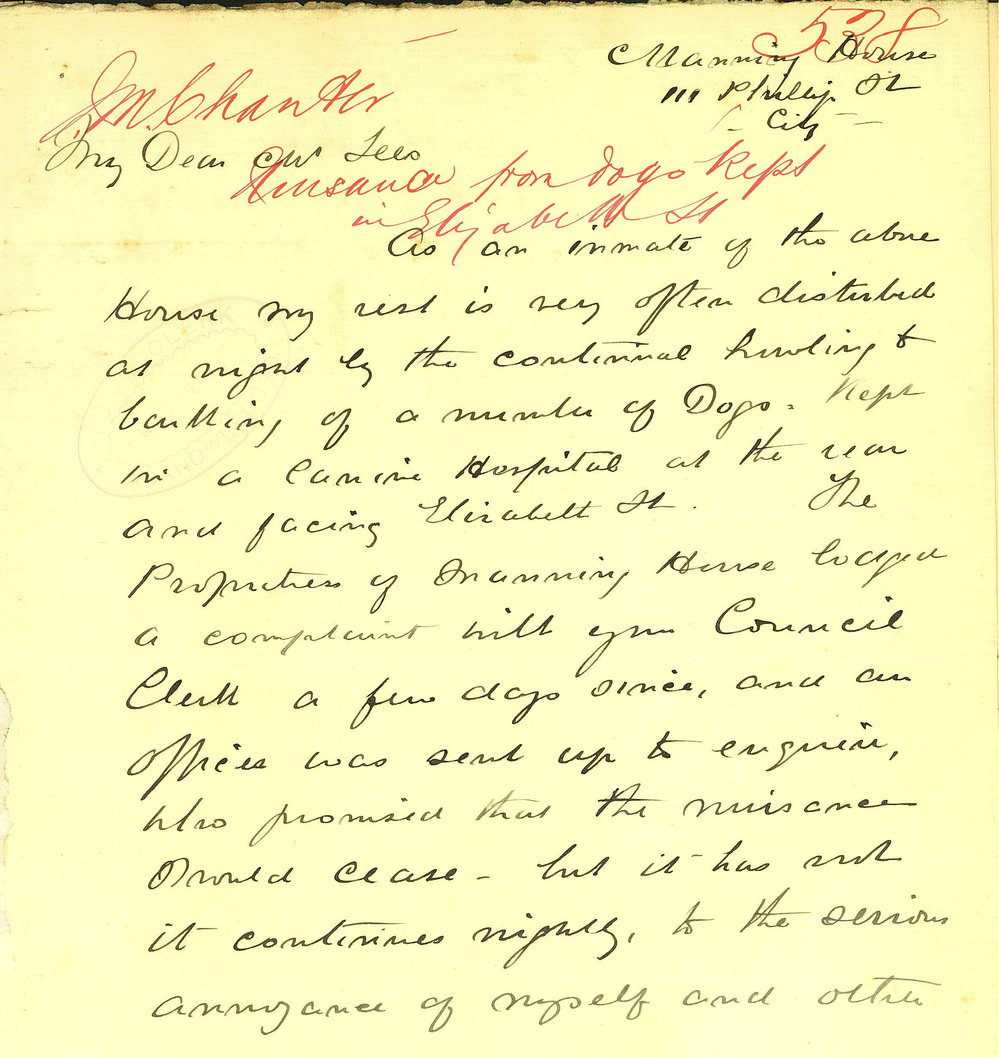 528
Manning House
111 Phillip St
City
J.M. Chanter
My Dear Mr Lees
Nuisance from dogs kept
in Elizabeth St
As an inmate of the above
House my rest is very often disturbed
at night by the continual howling &
barking of a number of Dogs. Kept
in a Canine Hospital at the rear
and facing Elizabeth St. The
Proprietress of Manning House lodged
a complaint with your Council
Clerk a few days since, and an
officer was sent up to enquire,
who promised that the nuisance
should cease - but it has not
it continues nightly, to the serious
annoyance of myself and other